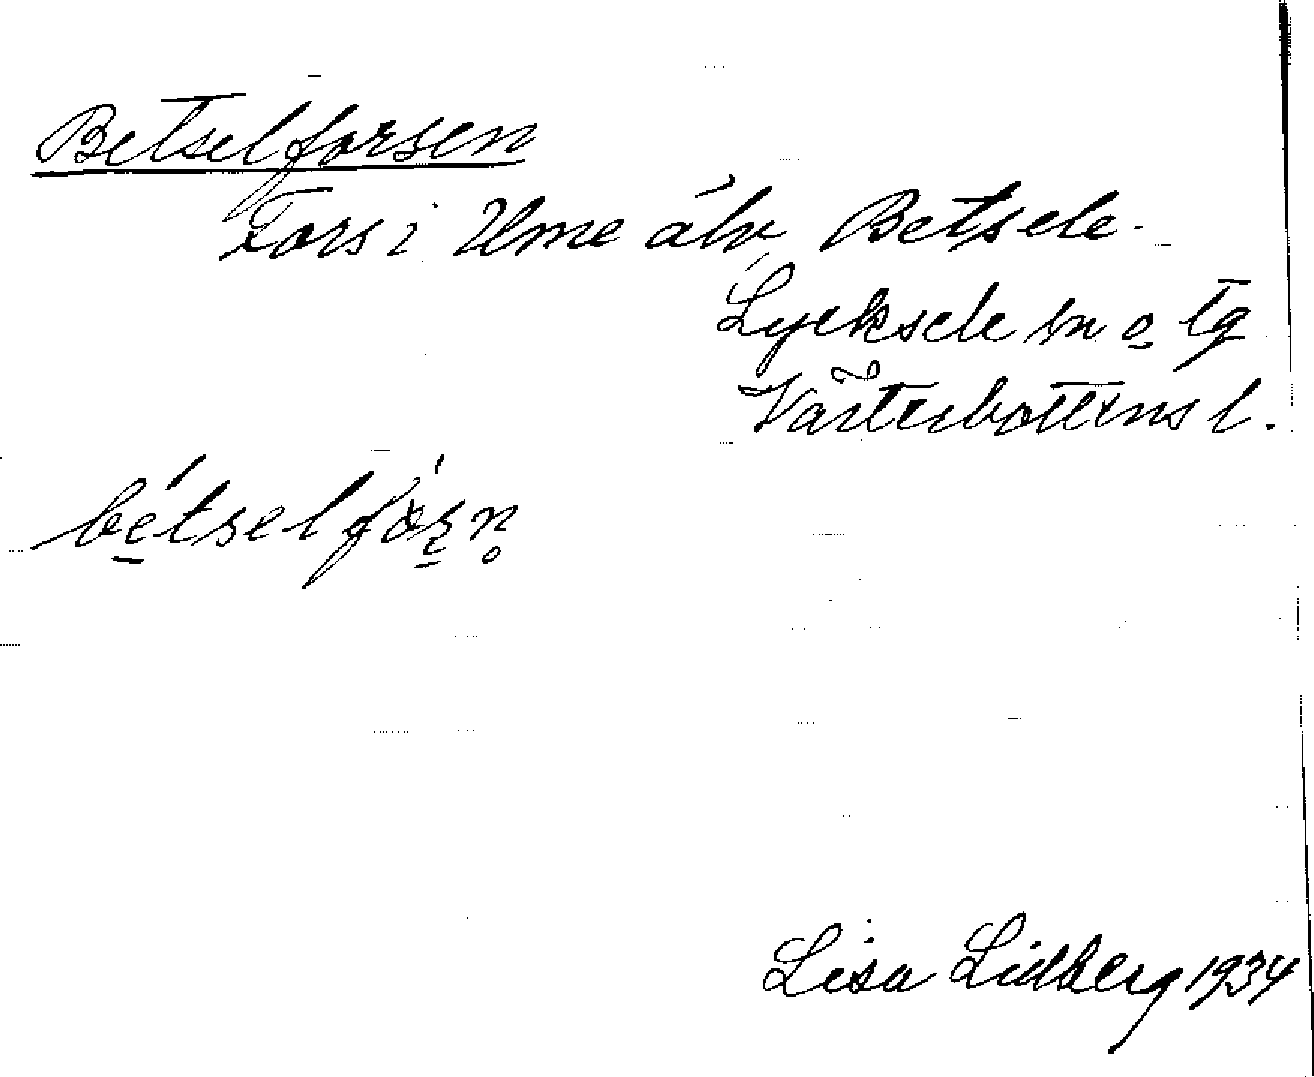 Betselforsen
Fors i Ume älv, Betsele.
Lycksele sn o tg
Västerbottens l.
bétselfórn
Lisa Lidberg 1934